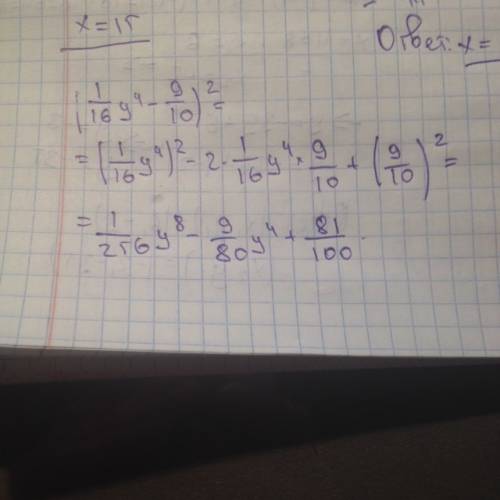 x=15
Ответ: x=
(1/16 y⁴ - 9/10)² =
= (1/16 y⁴)² - 2 · 1/16 y⁴ · 9/10 + (9/10)² =
= 1/256 y⁸ - 9/80 y⁴ + 81/100.